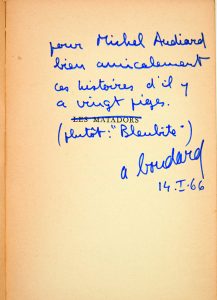 pour Michel Audiard
bien amicalement
ces histoires d'il y
a vingt piges.
LES MATADORS
(plutôt : "Bleubite")
a boudard
14.I.66